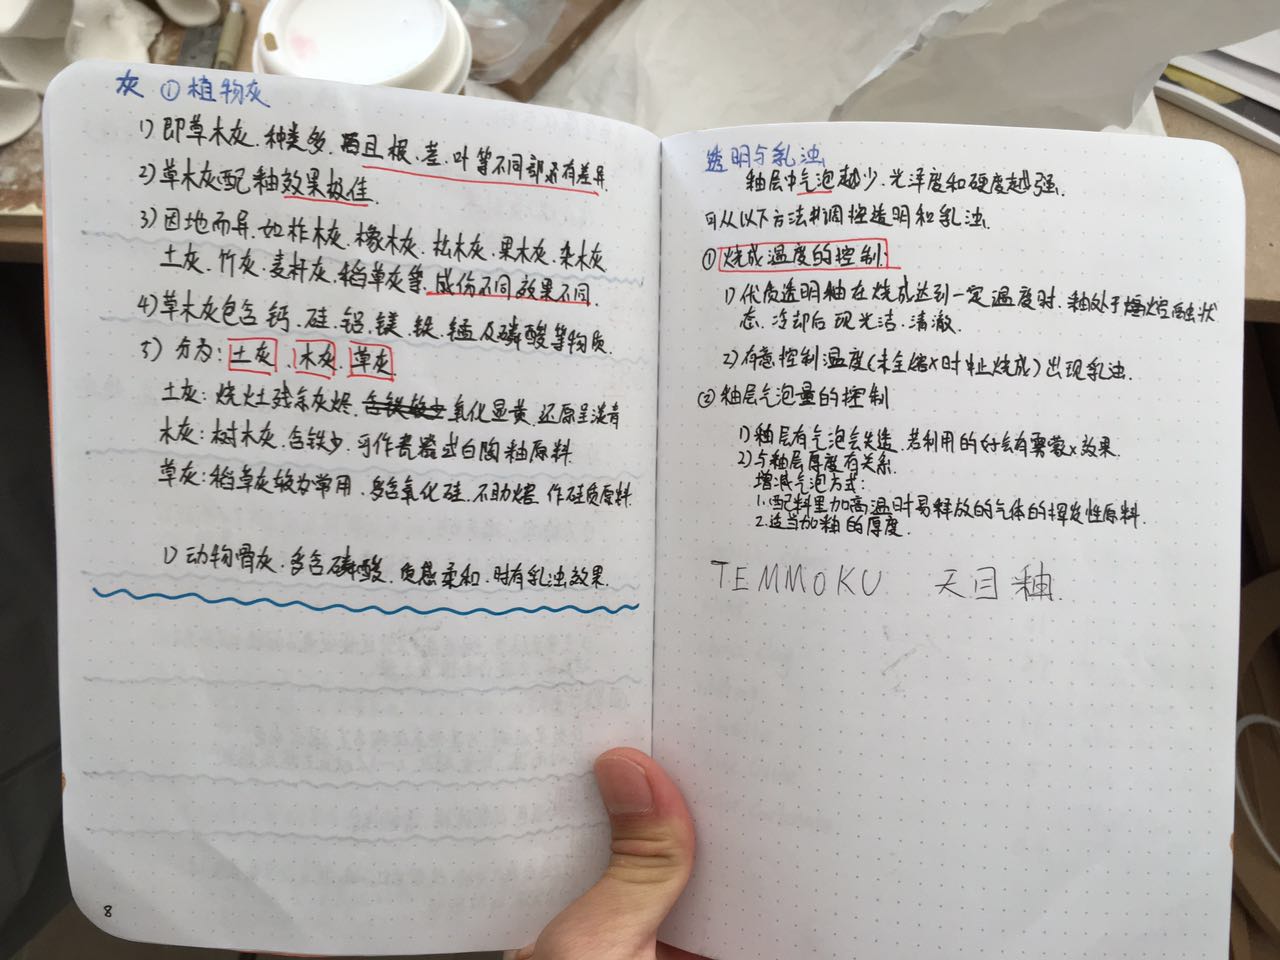 灰 ① 植物灰
1) 即草木灰.种类多.而且根、茎、叶等不同部位有差异.
2) 草木灰配釉效果极佳.
3) 因地而异.如柞木灰、橡木灰、松木灰、果木灰、杂木灰
土灰、竹灰、麦秆灰、稻草灰等.成份不同效果不同.
4) 草木灰包含钙、硅、铝、镁、铁、锰及磷酸等物质.
5) 分为: 土灰、木灰、草灰
土灰: 烧火土残余灰烬. 含铁较少 氧化显黄.还原呈淡青
木灰: 树木灰.含铁少.可作瓷器或白陶釉原料.
草灰: 稻草灰较为常用.多含氧化硅.不助熔.作硅质原料.
1) 动物骨灰.多含磷酸.质感柔和.时有乳浊效果.
8
透明与乳浊
釉层中气泡越少.光泽度和硬度越强.
可从以下方法来调控透明和乳浊.
① 烧成温度的控制:
1) 优质透明釉在烧成达到一定温度时.釉处于熔融状
态.冷却后现光洁.清澈.
2) 有意控制温度(未全熔×时中止烧成)出现乳浊.
② 釉层气泡量的控制
1) 釉层有气泡会失透.若利用的好会有雾蒙×效果.
2) 与釉层厚度有关系.
增减气泡方式:
1. 配料里加高温时易释放的气体的挥发性原料.
2. 适当加釉的厚度.
TEMMOKU 天目釉.